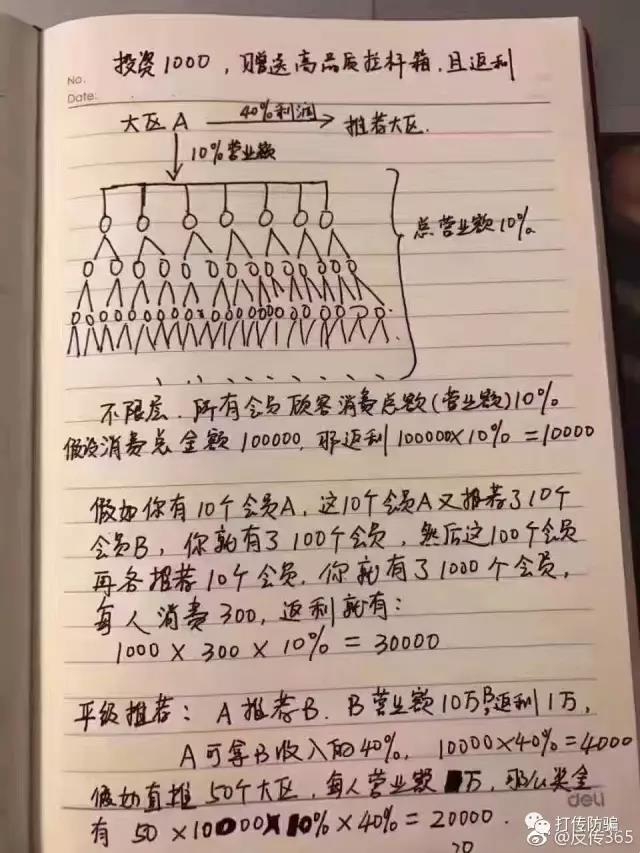 投资1000，赠送高品质拉杆箱，且返利
No.
Date:
大区A 40%利润 推荐大区.
10%营业额
总营业额10%
不限层.所有会员顾客消费总额(营业额)10%
假设消费总金额100000,那返利100000×10%=10000
假如你有10个会员A,这10个会员A又推荐了10个
会员B,你就有了100个会员,然后这100个会员
再各推荐10个会员.你就有了1000个会员,
每人消费300,返利就有:
1000×300×10%=30000
平级推荐: A推荐B.B营业额10万,B返利1万,
A可拿B收入的40%. 10000×40%=4000
假如直推50个大区,每人营业额 万,那么奖金
有50×10000×10%×40%=20000.
deli
打传防骗
@反传365